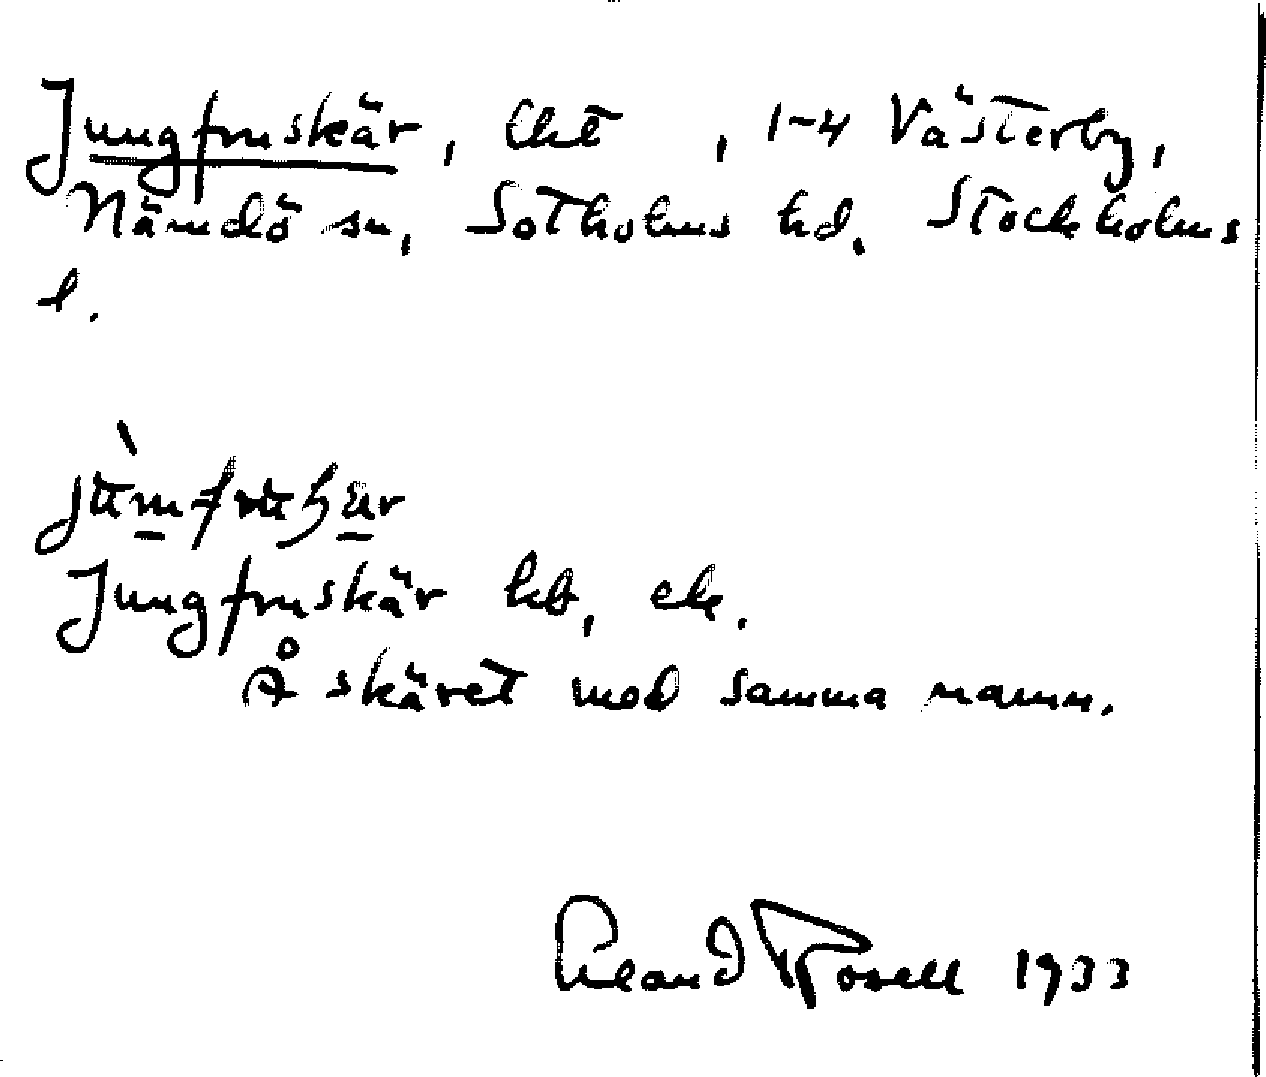 Jungfruskär, lht , 1-4 Västerby,
Nämdö sn, Sotholms hd, Stockholms
l.
Jungfruskär hb, ek.
Å skäret med samma namn.
Rosell 1933